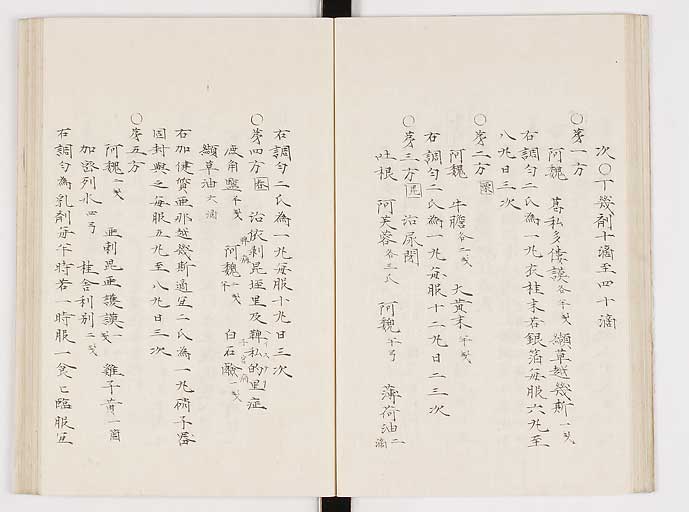 次○丁幾剤十滴至四十滴
○第一方
阿魏 甚私多倭謨各半 纈草越幾斯一
右調勻二氏為一丸衣桂末右銀箔毎服六丸至
八丸日三次
○第二方
阿魏 牛膽各一 大黄末半
右調勻二氏為一丸毎服十二丸日二三次
○第三方 治尿閉
吐根 阿芙蓉各三氏 阿魏半 薄荷油二滴
右調勻二氏為一丸毎服十丸日三次
○第四方 治依剥昆垤里及鞞私的里症
鹿角鹽半 阿魏一 白石鹸一
纈草油六滴
右加健質亜那越幾斯適宜二氏為一丸硝子器
固封與之毎服五丸至八丸日三次
○第五方
阿魏一 亜剌毘亜護謨一 雞子黄一箇
加密列水四 桂舎利別二
右調勻為乳剤毎半時若一時服一食匕臨服宜